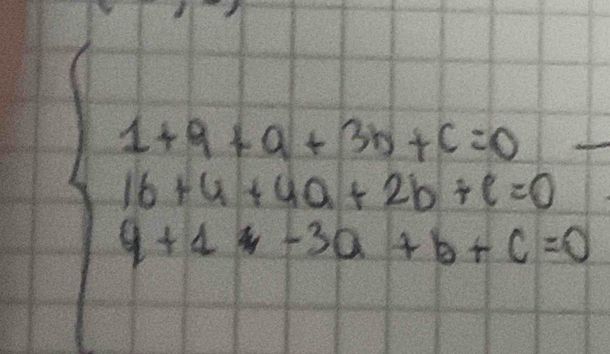 1 + 9 + a + 3b + c = 0 —
16 + 4 + 4a + 2b + c = 0
9 + 1 - 3a + b + c = 0